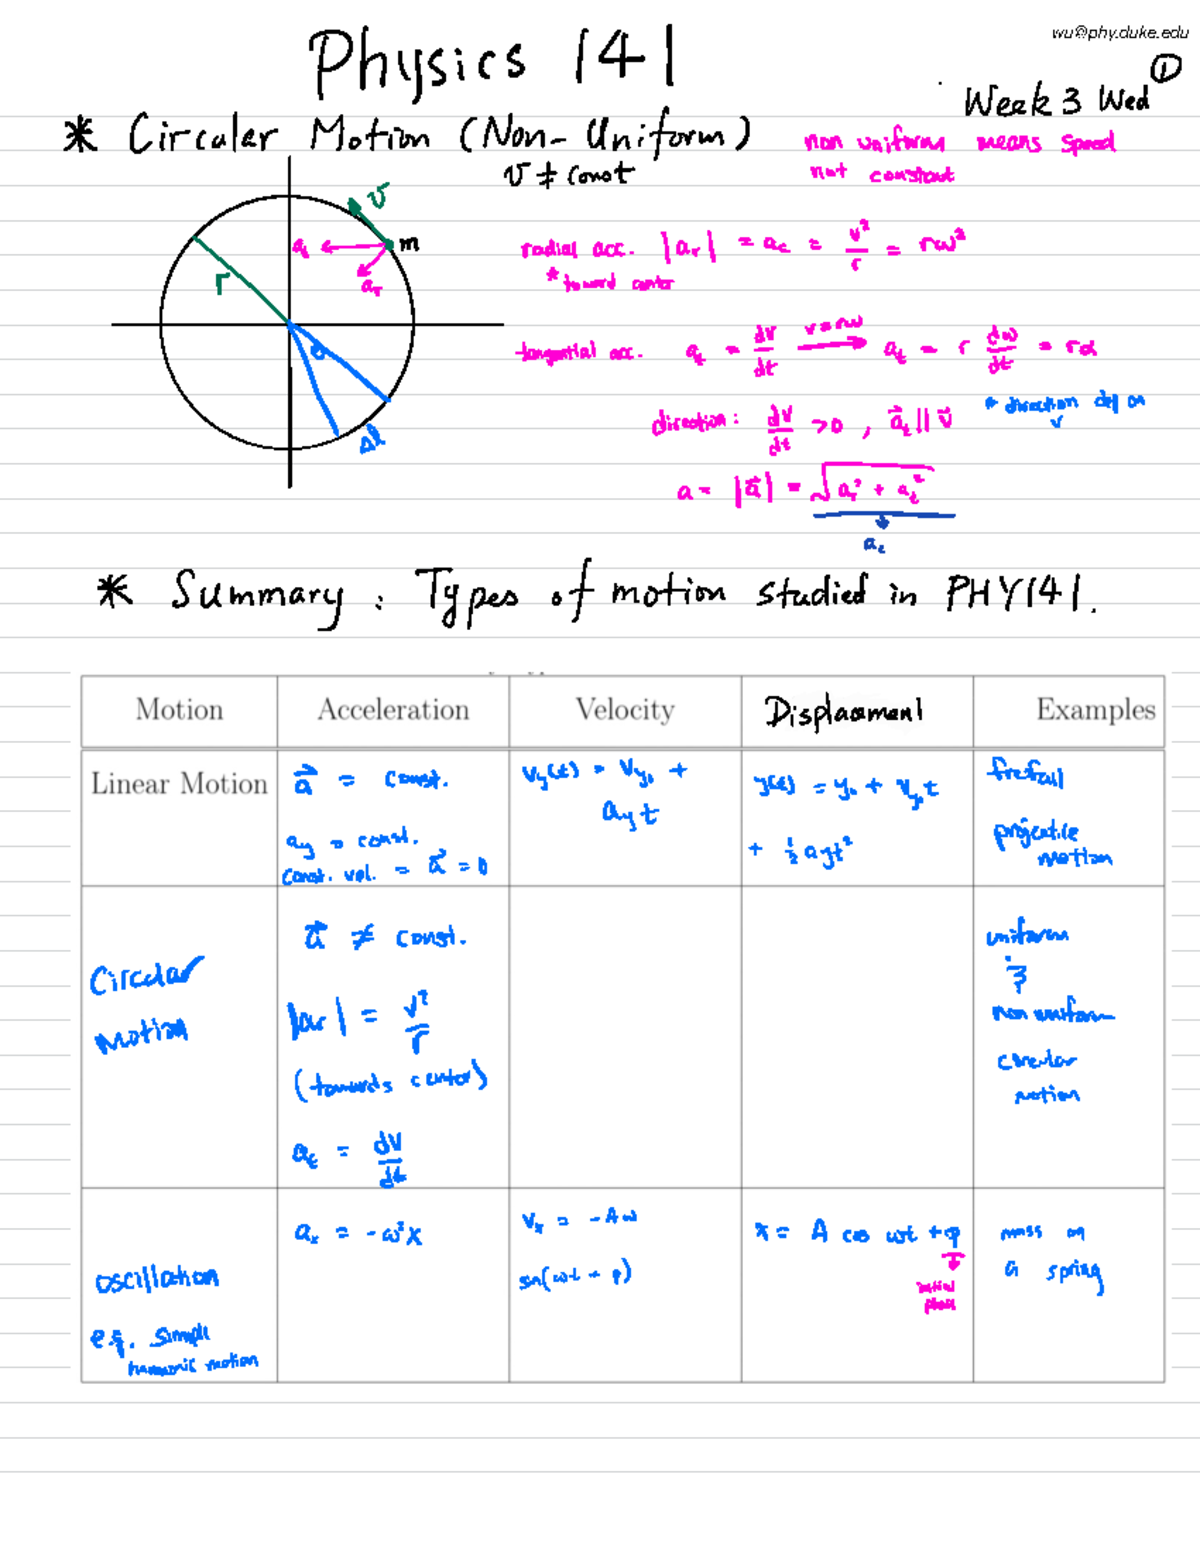 wu@phy.duke.edu
Physics 141
1
Week 3 Wed
* Circular Motion (Non-Uniform)
v ≠ const
non uniform means speed
not constant
v
m
a_t
a_r
r
θ
Δl
radial acc. |a_r| = a_c = v²/r = rω²
* toward center
tangential acc. a_t = dv/dt v=rω → a_t = r dω/dt = rα
* direction dep on
v
direction: dv/dt > 0, a⃗_t || v⃗
a = |a⃗| = √(a_r² + a_t²)
a_c
* Summary: Types of motion studied in PHY141.
Motion Acceleration Velocity Displacement Examples
Linear Motion
a⃗ = const.
a_y = const.
const. vel. = a⃗ = 0
v_y(t) = v_y₀ +
a_y t
y(t) = y₀ + v_y₀ t
+ ½ a_y t²
frefall
projectile
motion
Circular
motion
a⃗ ≠ const.
|a_r| = v²/r
(towards center)
a_t = dv/dt
uniform
&
non uniform
circular
motion
oscillation
e.g. simple
harmonic motion
a_x = -ω²x
v_x = -Aω
sin(ωt + φ)
x = A cos ωt + φ
initial
phase
mass on
a spring